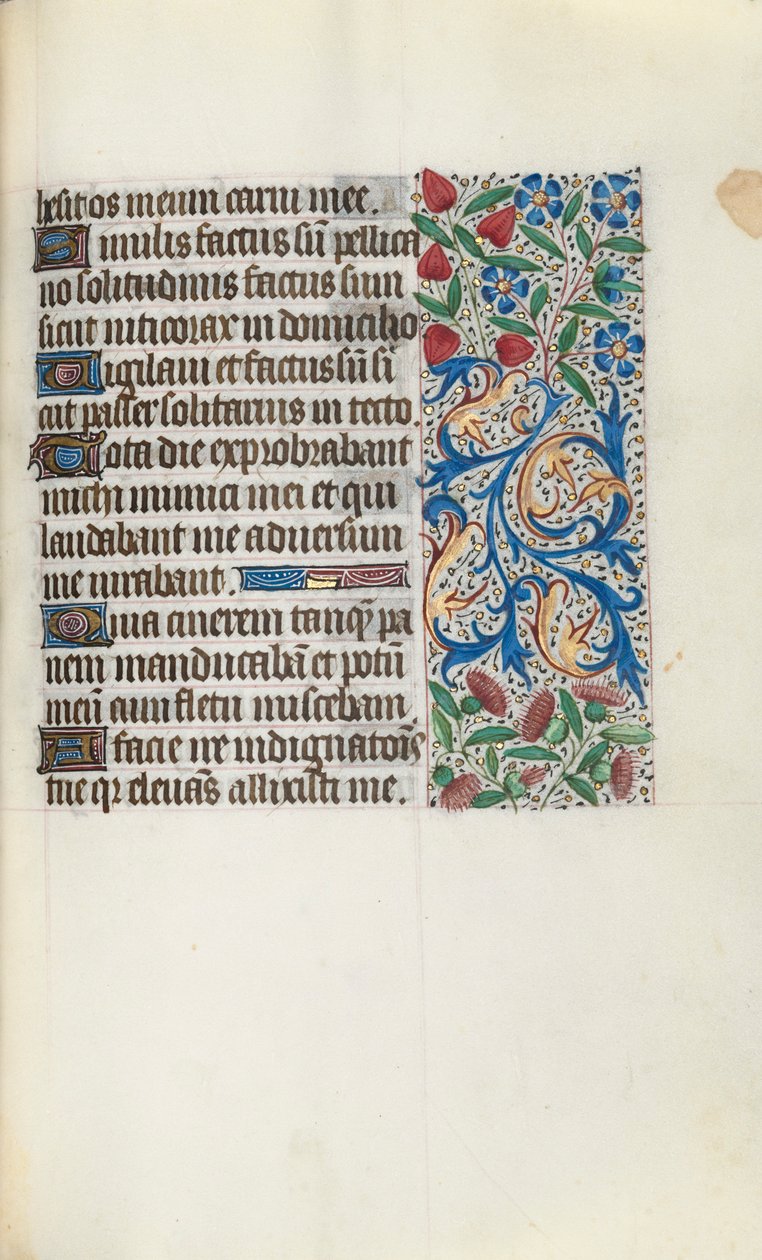 hesit os meum carni mee.
Similis factus sū pellica
no solitudinis factus sum
sicut niticorax in domicilio
Vigilavi et factus sū si
cut passer solitarius in tecto.
Tota die exprobrabant
michi inimici mei et qui
laudabant me adversum
me iurabant.
Quia cinerem tanq̄ pa
nem manducabā et potū
meū cum fletu miscebam.
A facie ire indignatōis
tue qr elevās allixisti me.